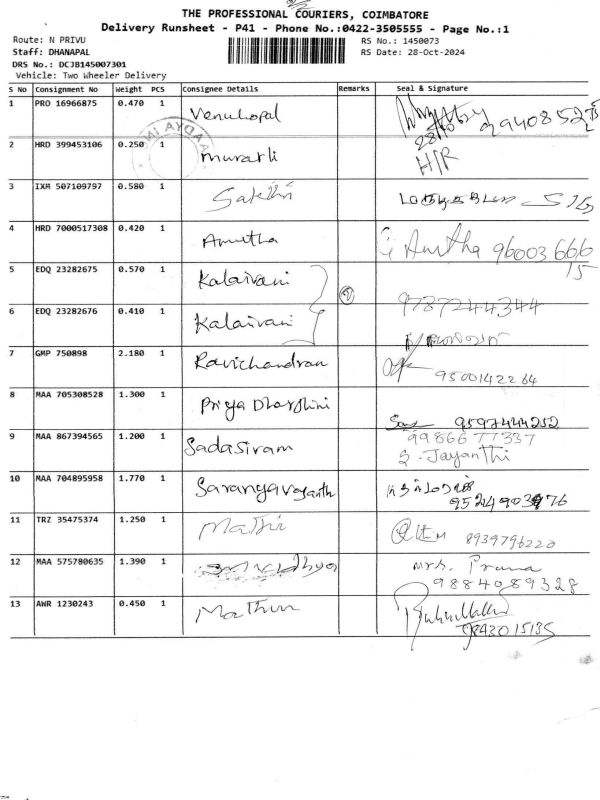 THE PROFESSIONAL COURIERS, COIMBATORE
Delivery Runsheet - P41 - Phone No.:0422-3505555 - Page No.:1
Route: N PRIVU
RS No.: 1450073
Staff: DHANAPAL
RS Date: 28-Oct-2024
DRS No.: DCJB145007301
Vehicle: Two Wheeler Delivery
S No Consignment No Weight PCS Consignee Details Remarks Seal & Signature
1 PRO 16966875 0.470 1 Venuhopal
2 HRD 399453106 0.250 1 murali H/R
3 IXM 507109797 0.580 1 Sakthi
4 HRD 7000517308 0.420 1 Amutha Amtha 96003 666
15
5 EDQ 23282675 0.570 1 Kalaivani 2 9787244344
6 EDQ 23282676 0.410 1 Kalaivani
7 GMP 750898 2.180 1 Ravichandran 9500142264
8 MAA 705308528 1.300 1 Priya Dharshini 9597444252
9 MAA 867394565 1.200 1 Sadasivam 9986677337
S. Jayanthi
10 MAA 704895958 1.770 1 Sarangarajanth
11 TRZ 35475374 1.250 1 Mathi 8939796220
12 MAA 575780635 1.390 1 Vidhya Mrs. Prema
9884089328
13 AWR 1230243 0.450 1 Mathun 9843015135